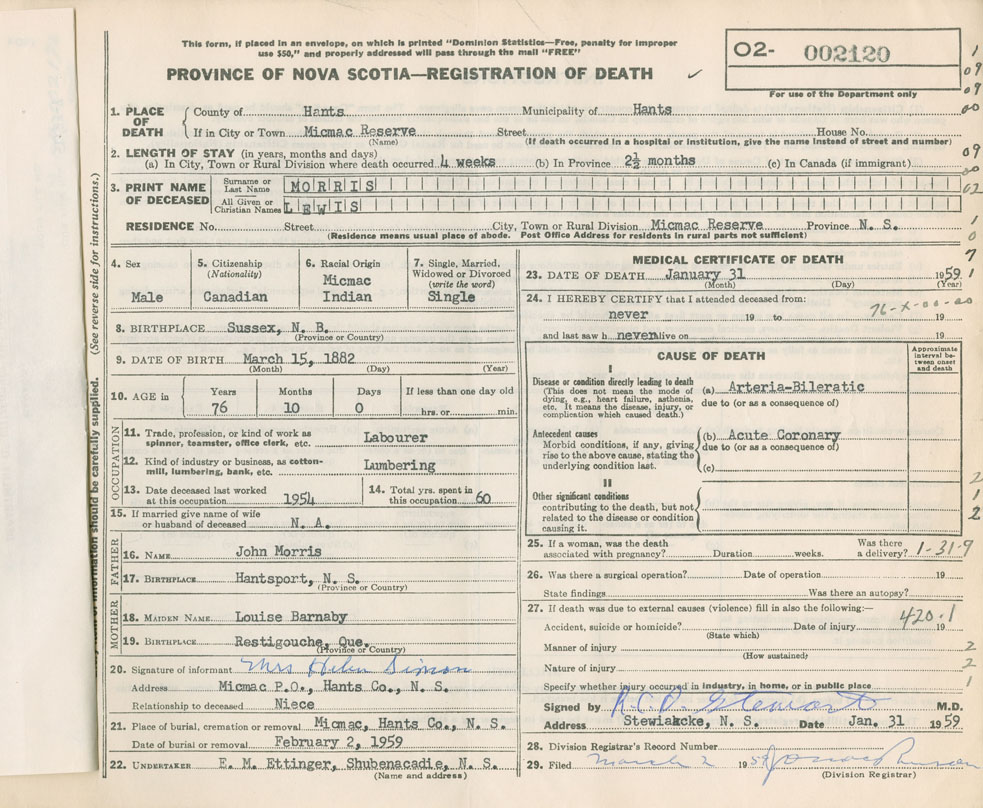 This form, if placed in an envelope, on which is printed "Dominion Statistics—Free, penalty for improper
use $50," and properly addressed will pass through the mail "FREE"
O2- 002120
For use of the Department only
PROVINCE OF NOVA SCOTIA—REGISTRATION OF DEATH
(See reverse side for instructions.)
information should be carefully supplied.
1. PLACE OF DEATH
County of Hants Municipality of Hants
If in City or Town Micmac Reserve Street House No.
(Name) (If death occurred in a hospital or institution, give the name instead of street and number)
2. LENGTH OF STAY (in years, months and days)
(a) In City, Town or Rural Division where death occurred 4 weeks (b) In Province 2½ months (c) In Canada (if immigrant)
3. PRINT NAME OF DECEASED
Surname or Last Name MORRIS
All Given or Christian Names LEWIS
RESIDENCE No. Street City, Town or Rural Division Micmac Reserve Province N. S.
(Residence means usual place of abode. Post Office Address for residents in rural parts not sufficient)
4. Sex
Male
5. Citizenship
(Nationality)
Canadian
6. Racial Origin
Micmac
Indian
7. Single, Married,
Widowed or Divorced
(write the word)
Single
8. BIRTHPLACE Sussex, N. B.
(Province or Country)
9. DATE OF BIRTH March 15, 1882
(Month) (Day) (Year)
10. AGE in
Years Months Days If less than one day old
76 10 0 hrs. or min.
OCCUPATION
11. Trade, profession, or kind of work as
spinner, teamster, office clerk, etc. Labourer
12. Kind of industry or business, as cotton-
mill, lumbering, bank, etc. Lumbering
13. Date deceased last worked
at this occupation 1954
14. Total yrs. spent in
this occupation 60
15. If married give name of wife
or husband of deceased N. A.
FATHER
16. NAME John Morris
17. BIRTHPLACE Hantsport, N. S.
(Province or Country)
MOTHER
18. MAIDEN NAME Louise Barnaby
19. BIRTHPLACE Restigouche, Que.
(Province or Country)
20. Signature of informant Mrs Helen Simon
Address Micmac P.O., Hants Co., N. S.
Relationship to deceased Niece
21. Place of burial, cremation or removal Micmac, Hants Co., N. S.
Date of burial or removal February 2, 1959
22. UNDERTAKER E. M. Ettinger, Shubenacadie, N. S.
(Name and address)
MEDICAL CERTIFICATE OF DEATH
23. DATE OF DEATH January 31 1959
(Month) (Day) (Year)
24. I HEREBY CERTIFY that I attended deceased from:
76-X-00-00
never 19 to 19
and last saw h never alive on 19
CAUSE OF DEATH
Approximate
interval be-
tween onset
and death
I
Disease or condition directly leading to death
(This does not mean the mode of
dying, e.g., heart failure, asthenia,
etc. It means the disease, injury, or
complication which caused death.)
(a) Arteria-Bileratic
due to (or as a consequence of)
Antecedent causes
Morbid conditions, if any, giving
rise to the above cause, stating the
underlying condition last.
(b) Acute Coronary
due to (or as a consequence of)
(c)
II
Other significant conditions
contributing to the death, but not
related to the disease or condition
causing it.
25. If a woman, was the death
associated with pregnancy? Duration weeks. Was there
a delivery? 1-31-9
26. Was there a surgical operation? Date of operation 19
State findings Was there an autopsy?
27. If death was due to external causes (violence) fill in also the following:—
420.1
Accident, suicide or homicide? Date of injury 19
(State which)
Manner of injury
(How sustained)
Nature of injury
Specify whether injury occurred in industry, in home, or in public place
Signed by R.C.D. Stewart M.D.
Address Stewiakcke, N. S. Date Jan. 31 1959
28. Division Registrar's Record Number
29. Filed March 2 1959
(Division Registrar)
1
09
09
00
09
00
02
1
0
7
1
2
1
2
2
2
1